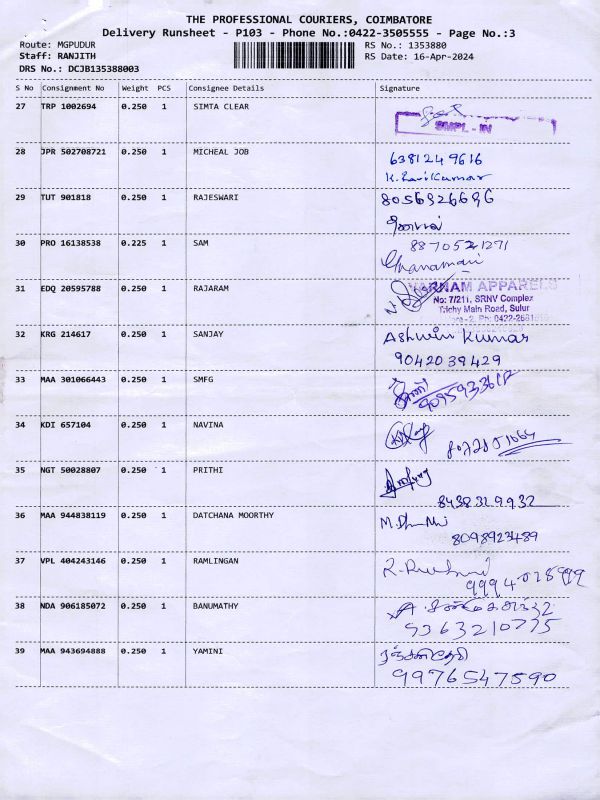 THE PROFESSIONAL COURIERS, COIMBATORE
Delivery Runsheet - P103 - Phone No.:0422-3505555 - Page No.:3
Route: MGPUDUR RS No.: 1353880
Staff: RANJITH RS Date: 16-Apr-2024
DRS No.: DCJB135388003
S No Consignment No Weight PCS Consignee Details Signature
27 TRP 1002694 0.250 1 SIMTA CLEAR
SMPL - IN
28 JPR 502708721 0.250 1 MICHEAL JOB 6381249616
K. RaviKumar
29 TUT 901818 0.250 1 RAJESWARI 8056926696
30 PRO 16138538 0.225 1 SAM 8870521271
Gnanamani
31 EDQ 20595788 0.250 1 RAJARAM VARNAM APPARELS
No: 7/211, SRNV Complex
Trichy Main Road, Sulur
32 KRG 214617 0.250 1 SANJAY Ashwin Kumar
9042039429
33 MAA 301066443 0.250 1 SMFG
34 KDI 657104 0.250 1 NAVINA
35 NGT 50028807 0.250 1 PRITHI
8438329932
36 MAA 944838119 0.250 1 DATCHANA MOORTHY
8098923489
37 VPL 404243146 0.250 1 RAMLINGAN
38 NDA 906185072 0.250 1 BANUMATHY
9363210775
39 MAA 943694888 0.250 1 YAMINI
9976547590